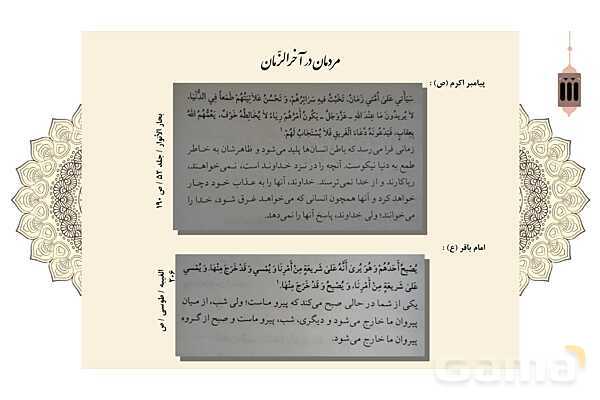 مردمان در آخرالزّمان
پیامبر اکرم (ص) :
سَيَأْتي عَلى أُمَّتي زَمانٌ، تَخْبُثُ فيهِ سَرائِرُهُمْ، وَ تَحْسُنُ عَلانِيَتُهُمْ طَمَعاً فِي الدُّنْيا،
لا يُريدُونَ ما عِنْدَ اللهِ ـ عَزَّوَجَلَّ ـ يَكُونُ أَمْرُهُمْ رِياءً لا يُخالِطُهُ خَوْفٌ، يَعُمُّهُمُ اللهُ
بِعِقابٍ، فَيَدْعُونَهُ دُعاءَ الْغَريقِ فَلا يُسْتَجابُ لَهُمْ!
زمانی فرا می‌رسد که باطن انسان‌ها پلید می‌شود و ظاهرشان به خاطر
طمع به دنیا نیکوست. آنچه را در نزد خداوند است، نمی‌خواهند،
ریاکارند و از خدا نمی‌ترسند. خداوند، آنها را به عذاب خود دچار
خواهد کرد و آنها همچون انسانی که می‌خواهد غرق شود، خدا را
می‌خوانند؛ ولی خداوند، پاسخ آنها را نمی‌دهد.
بحار الأنوار / جلد ۵۲ / ص ۱۹۰
امام باقر (ع) :
يُصْبِحُ أَحَدُهُمْ وَ هُوَ يُرى أَنَّهُ عَلى شَريعَةٍ مِنْ أَمْرِنا وَ يُمْسي وَ قَدْ خَرَجَ مِنْها، وَ يُمْسي
عَلى شَريعَةٍ مِنْ أَمْرِنا، وَ يُصْبِحُ وَ قَدْ خَرَجَ مِنْها.!
یکی از شما در حالی صبح می‌کند که پیرو ماست؛ ولی شب، از میان
پیروان ما خارج می‌شود و دیگری، شب، پیرو ماست و صبح از گروه
پیروان ما خارج می‌شود.
الغیبه / طوسی / ص
۲۰۶
Gama